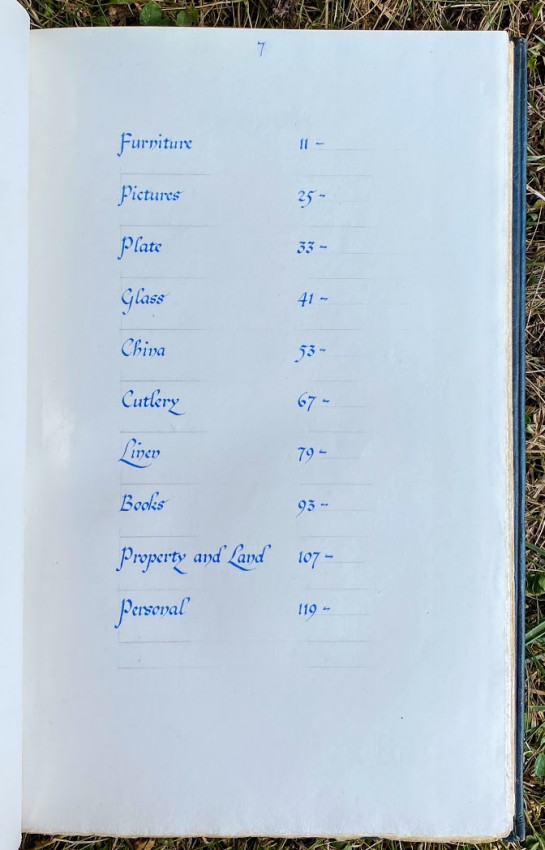 7
Furniture 11 -
Pictures 25 -
Plate 33 -
Glass 41 -
China 53 -
Cutlery 67 -
Linen 79 -
Books 93 -
Property and Land 107 -
Personal 119 -